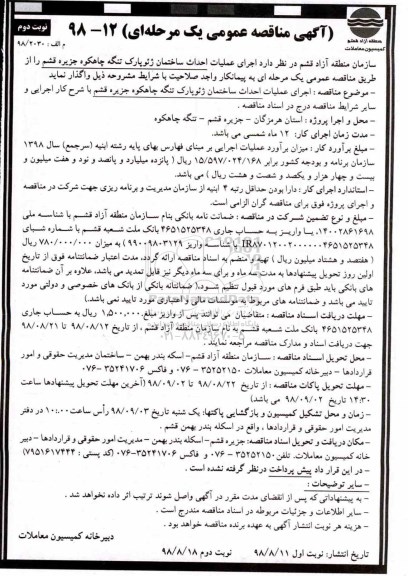 نوبت دوم
(آگهی مناقصه عمومی یک مرحله‌ای) ۱۲- ۹۸
منطقه آزاد قشم
کمیسیون معاملات
م الف : ۹۸/۲۰۳۰
سازمان منطقه آزاد قشم در نظر دارد اجرای عملیات احداث ساختمان ژئوپارک تنگه چاهکوه جزیره قشم را از
طریق مناقصه عمومی یک مرحله ای به پیمانکار واجد صلاحیت با شرایط مشروحه ذیل واگذار نماید
- موضوع مناقصه : اجرای عملیات احداث ساختمان ژئوپارک تنگه چاهکوه جزیره قشم با شرح کار اجرایی و
سایر شرایط مناقصه درج در اسناد مناقصه .
- محل و اجرا پروژه : استان هرمزگان – جزیره قشم – تنگه چاهکوه
- مدت زمان اجرای کار: ۱۲ ماه شمسی می باشد.
- مبلغ برآورد کار : میزان برآورد عملیات اجرایی بر مبنای فهارس بهای پایه رشته ابنیه (سرجمع) سال ۱۳۹۸
سازمان برنامه و بودجه کشور برابر ۱۵/۵۹۷/۰۲۴/۱۶۸ ریال ( پانزده میلیارد و پانصد و نود و هفت میلیون و
بیست و چهار هزار و یکصد و شصت و هشت ریال ) می باشد.
- استاندارد اجرای کار : دارا بودن حداقل رتبه ۴ ابنیه از سازمان مدیریت و برنامه ریزی جهت شرکت در مناقصه
و اجرای پروژه فوق برای مناقصه گران الزامی است.
- مبلغ و نوع تضمین شرکت در مناقصه : ضمانت نامه بانکی بنام سازمان منطقه آزاد قشم با شناسه ملی
۱۴۰۰۲۸۶۱۶۹۸، یا واریز به حساب ۴۶۵۱۵۲۵۳۴۸ بانک ملت شعبه قشم با شماره شبای
IR۸۷۰۱۲۰۰۲۰۰۰۰۰۴۶۵۱۵۲۵۳۴۸ با شناسه واریز ۹۹۰۰۹۸۰۳۱۲۹ ) به میزان ۷۸۰/۰۰۰/۰۰۰ ریال
( هفتصد و هشتاد میلیون ریال ) تهیه و منضم به اسناد مناقصه ارائه گردد، مدت اعتبار ضمانتنامه فوق از تاریخ
اولین روز تحویل پیشنهادها به مدت سه ماه و برای سه ماه دیگر نیز قابل تمدید می باشد، علاوه بر آن ضمانتنامه
های بانکی باید طبق فرم های مورد قبول تنظیم شود.( ضمانتنامه بانکی از بانک های خصوصی و دولتی مورد
تایید می باشد و ضمانتنامه های مربوط به موسسات مالی و اعتباری مورد تایید نمی باشد).
- مهلت دریافت اسناد مناقصه : متقاضیان می توانند پس از واریز مبلغ ۱,۵۰۰,۰۰۰ ریال به حساب جاری
۴۶۵۱۵۲۵۳۴۸ بانک ملت شعبه قشم به نام سازمان منطقه آزاد قشم ، از تاریخ ۹۸/۰۸/۱۲ تا ۹۸/۰۸/۲۱
جهت دریافت اسناد و مدارک مناقصه مراجعه نمایند .
- محل تحویل اسناد مناقصه : سازمان منطقه آزاد قشم– اسکله بندر بهمن – ساختمان مدیریت حقوقی و امور
قراردادها – دبیرخانه کمیسیون معاملات ۳۵۲۵۲۱۵۰ – ۰۷۶ و فاکس ۳۵۲۴۱۷۰۶-۰۷۶
- مهلت تحویل پاکات مناقصه : از تاریخ ۹۸/۰۸/۲۲ تا ۹۸/۰۹/۰۲ (آخرین مهلت تحویل پیشنهادها ساعت
۱۴:۳۰ تاریخ ۹۸/۰۹/۰۲ می باشد)
- زمان و محل تشکیل کمیسیون و بازگشایی پاکتها: یک شنبه تاریخ ۹۸/۰۹/۰۳ رأس ساعت ۱۰:۰۰ در دفتر
مدیریت امور حقوقی و قراردادها ، واقع در اسکله بندر بهمن .
- مکان دریافت و تحویل اسناد مناقصه: جزیره قشم- اسکله بندر بهمن – مدیریت امور حقوقی و قراردادها – دبیر
خانه کمیسیون معاملات. تلفن ۳۵۲۵۲۱۵۰ – ۰۷۶ و فاکس ۳۵۲۴۱۷۰۶-۰۷۶ (کد پستی : ۷۹۵۱۶۱۷۴۴۴)
- در این قرار داد پیش پرداخت درنظر گرفته نشده است .
- سایر توضیحات :
- به پیشنهاداتی که پس از انقضای مدت مقرر در آگهی واصل شوند ترتیب اثر داده نخواهد شد .
- سایر اطلاعات و جزئیات مربوطه در اسناد مناقصه مندرج است .
- هزینه هر نوبت انتشار آگهی به عهده برنده مناقصه خواهد بود .
دبیرخانه کمیسیون معاملات
تاریخ انتشار: نوبت اول ۹۸/۸/۱۱ نوبت دوم ۹۸/۸/۱۸